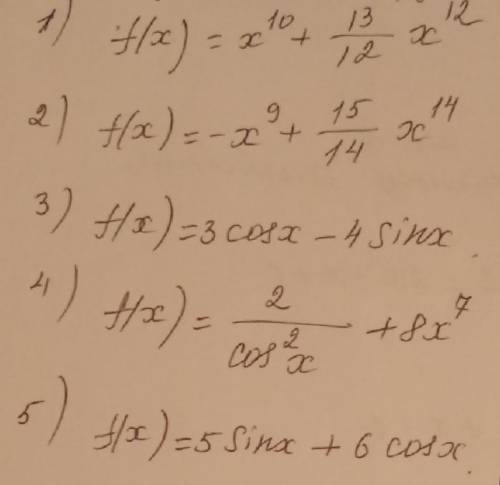 1) f(x) = x^10 + 13/12 x^12
2) f(x) = -x^9 + 15/14 x^14
3) f(x) = 3 cosx - 4 sinx
4) f(x) = 2/cos^2 x + 8x^7
5) f(x) = 5 sinx + 6 cosx